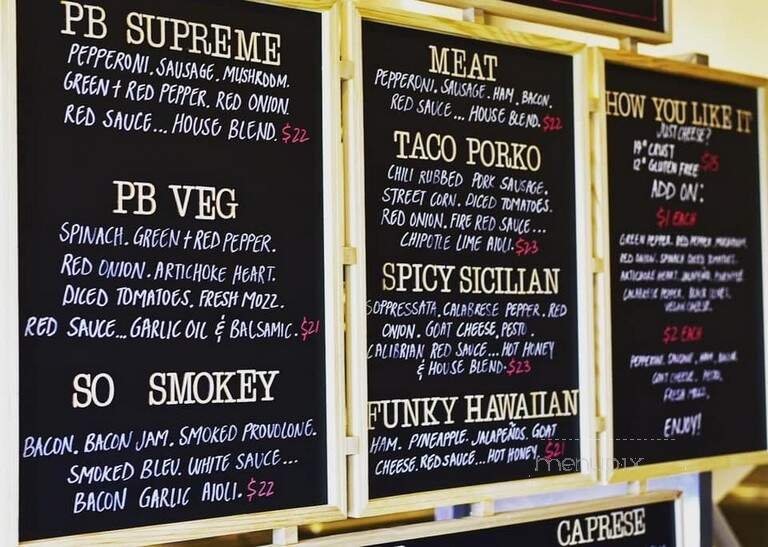 PB SUPREME
PEPPERONI. SAUSAGE. MUSHROOM.
GREEN + RED PEPPER. RED ONION.
RED SAUCE... HOUSE BLEND. $22
PB VEG
SPINACH. GREEN + RED PEPPER.
RED ONION. ARTICHOKE HEART.
DICED TOMATOES. FRESH MOZZ.
RED SAUCE... GARLIC OIL & BALSAMIC. $21
SO SMOKEY
BACON. BACON JAM. SMOKED PROVOLONE.
SMOKED BLEU. WHITE SAUCE...
BACON GARLIC AIOLI. $22
MEAT
PEPPERONI. SAUSAGE. HAM. BACON.
RED SAUCE... HOUSE BLEND. $22
TACO PORKO
CHILI RUBBED PORK SAUSAGE.
STREET CORN. DICED TOMATOES.
RED ONION. FIRE RED SAUCE...
CHIPOTLE LIME AIOLI. $23
SPICY SICILIAN
SOPPRESSATA. CALABRESE PEPPER. RED
ONION. GOAT CHEESE. PESTO.
CALIBRIAN RED SAUCE... HOT HONEY
& HOUSE BLEND. $23
FUNKY HAWAIIAN
HAM. PINEAPPLE. JALAPEÑOS. GOAT
CHEESE. RED SAUCE... HOT HONEY. $21
HOW YOU LIKE IT
JUST CHEESE?
19" CRUST
12" GLUTEN FREE $15
ADD ON:
$1 EACH
GREEN PEPPER. RED PEPPER. MUSHROOM.
RED ONION. SPINACH. DICED TOMATOES.
ARTICHOKE HEART. JALAPEÑO. PINEAPPLE.
CALABRESE PEPPER. BLACK OLIVES.
VEGAN CHEESE.
$2 EACH
PEPPERONI. SAUSAGE. HAM. BACON.
GOAT CHEESE. PESTO.
FRESH MOZZ.
ENJOY!
menupix
CAPRESE